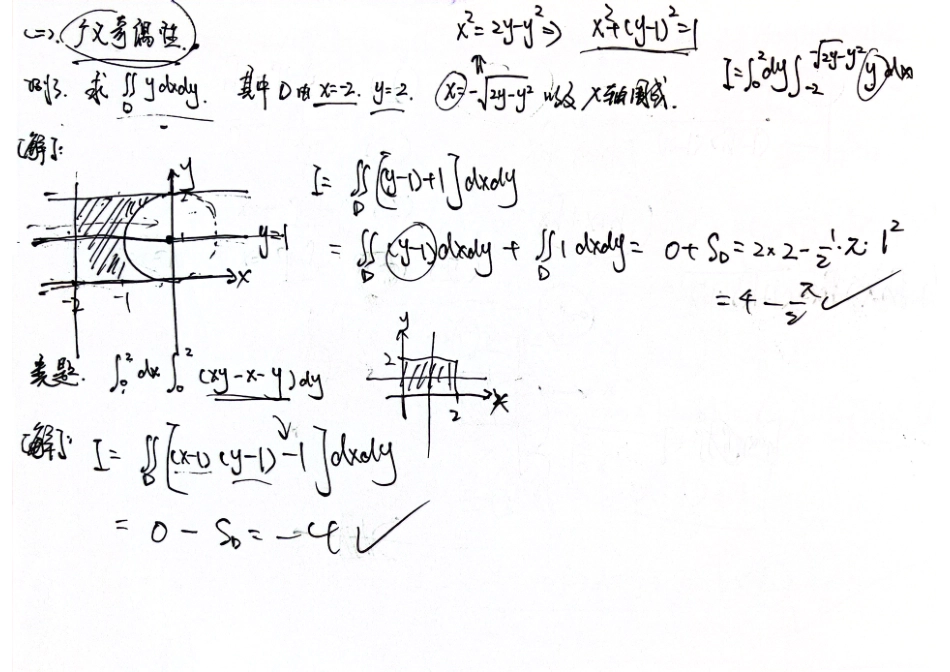 (二). 广义奇偶性.
x²=2y-y² ⇒ x²+(y-1)²=1
求 ∬_D ydxdy. 其中 D 由 x=-2. y=2. x=-√(2y-y²) 以及 X轴围成.
I=∫₀² dy ∫₋₂^(-√(2y-y²)) y dx
[解]:
I= ∬_D [(y-1)+1]dxdy
= ∬_D (y-1)dxdy + ∬_D 1 dxdy = 0+S_D = 2×2-½·π·1²
= 4-π/2 ✓
y
2
1
y=1
x
-2 -1
类题. ∫₀² dx ∫₀² (xy-x-y)dy
y
2
2
x
[解]: I= ∬_D [(x-1)(y-1)-1]dxdy
= 0 - S_D = -4 ✓